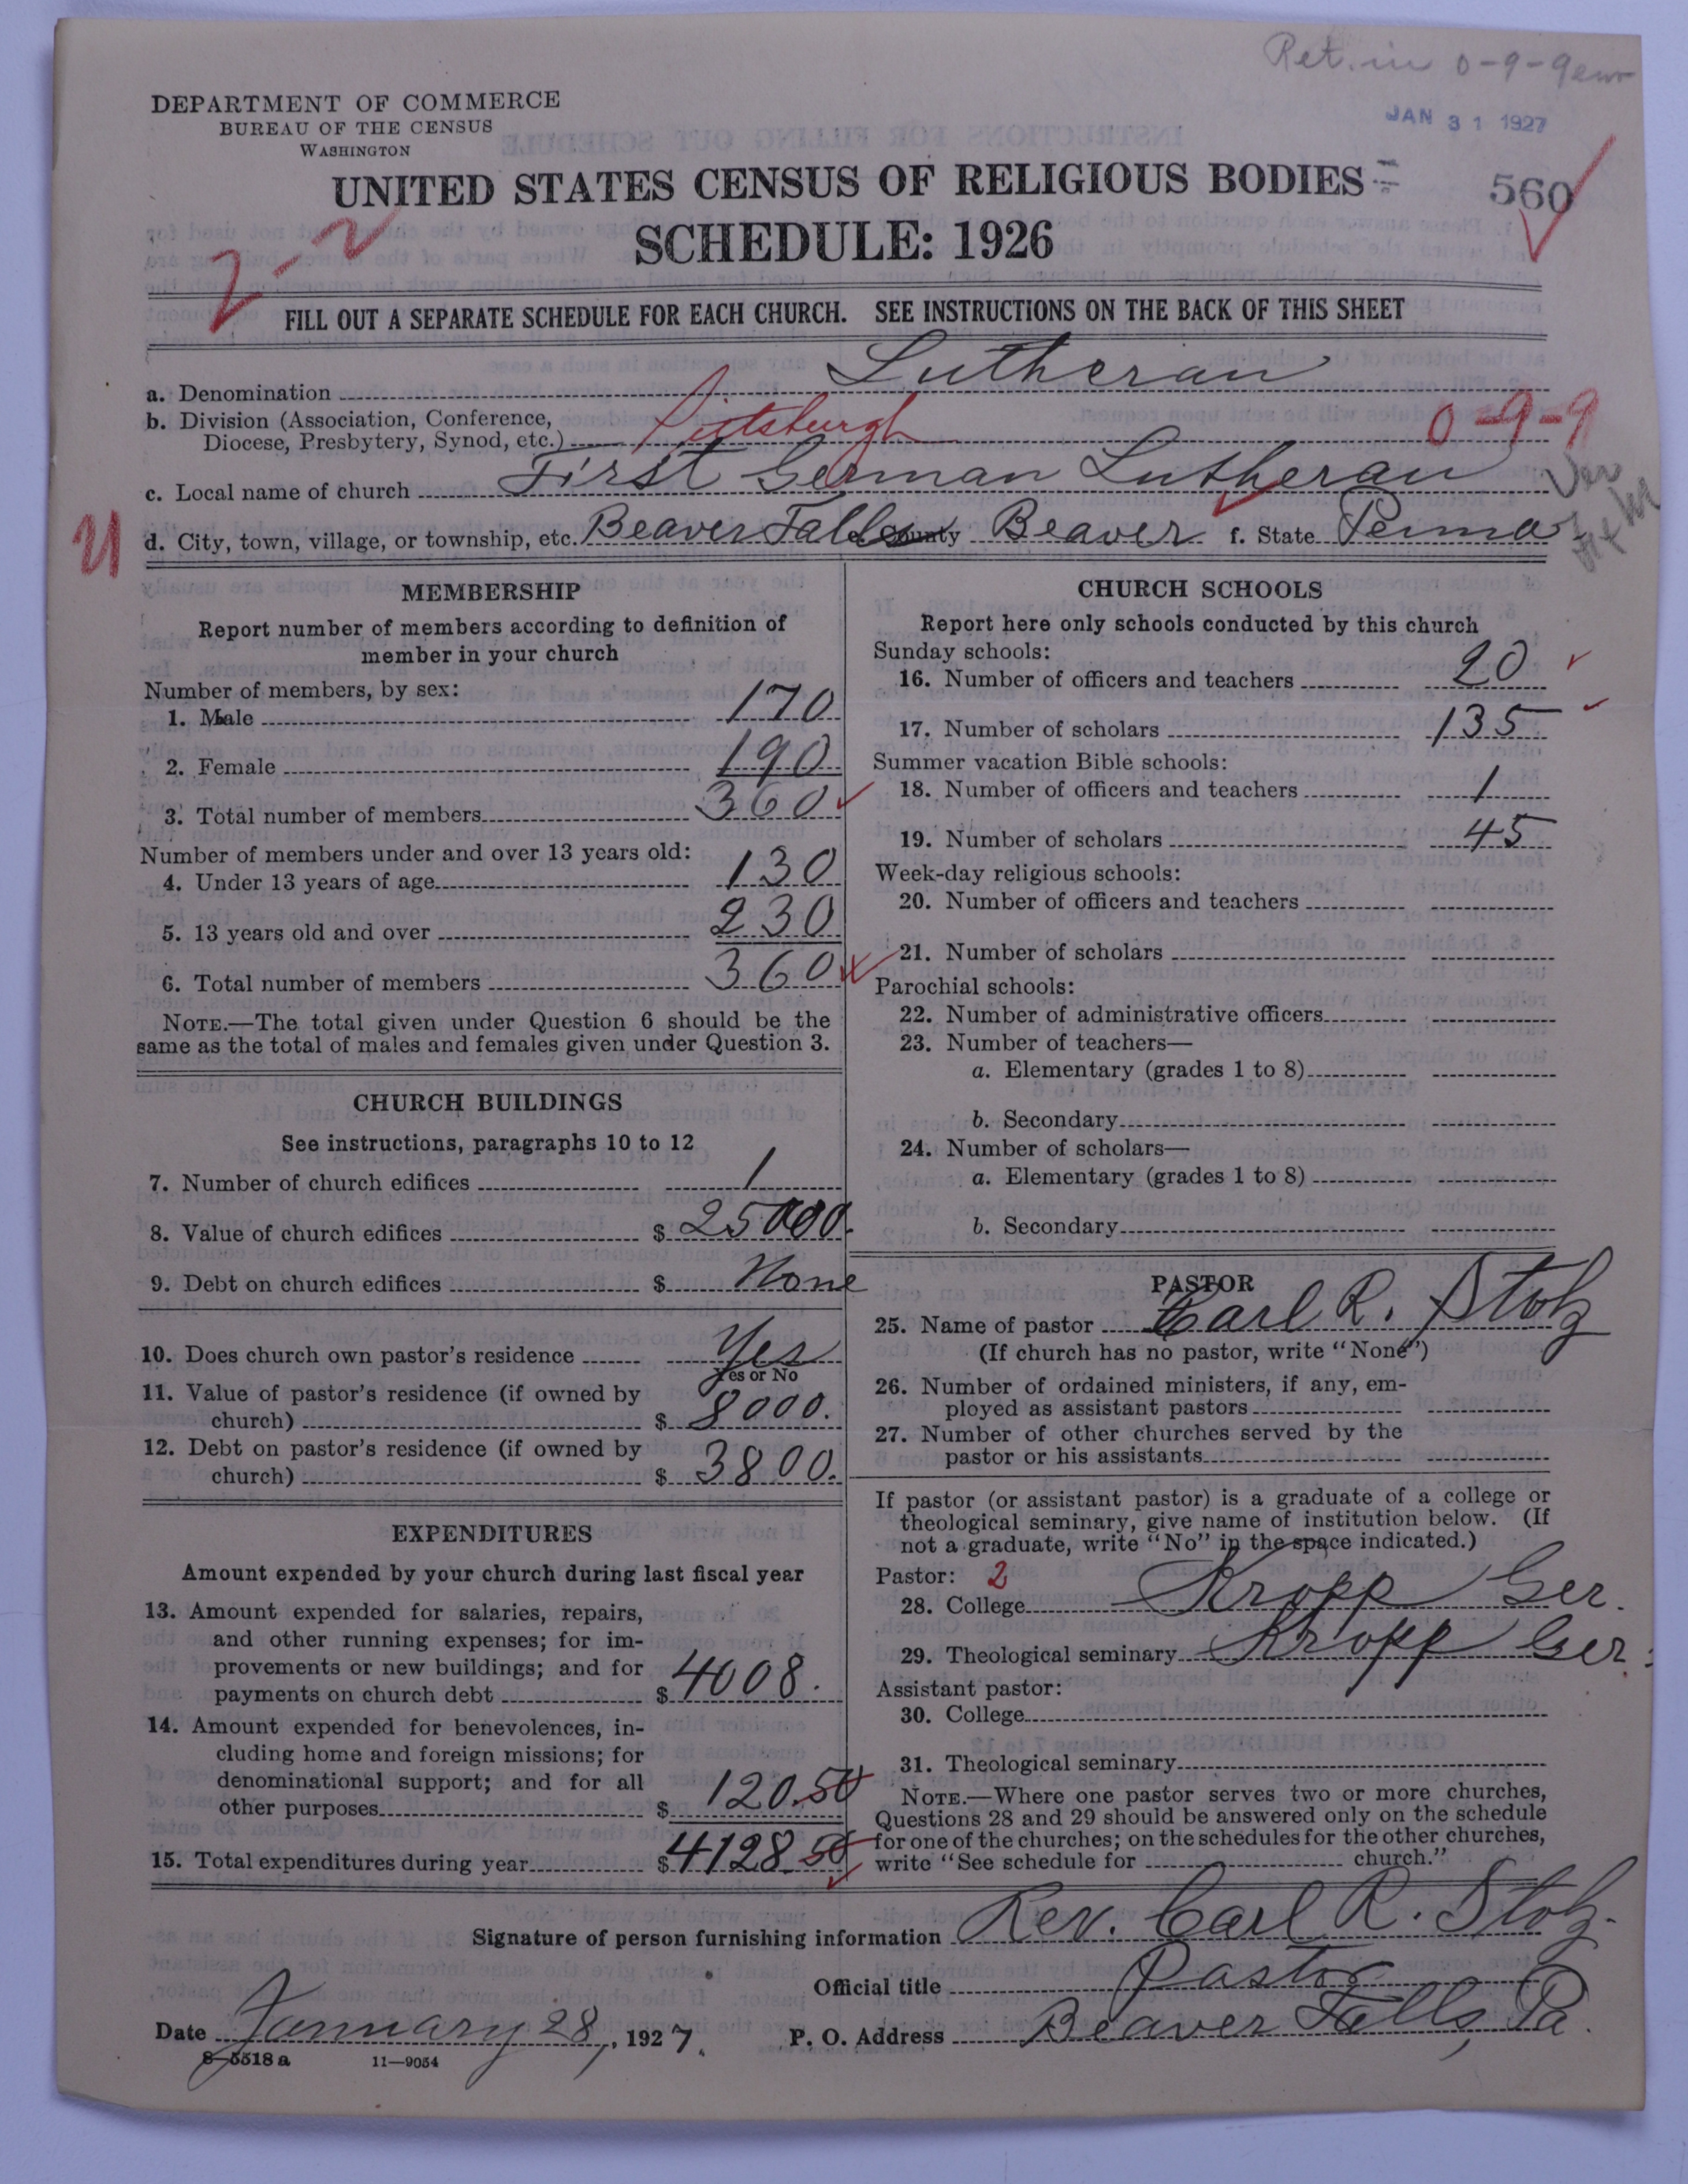 Ret. in 0-9-9
JAN 31 1927
DEPARTMENT OF COMMERCE
BUREAU OF THE CENSUS
WASHINGTON
UNITED STATES CENSUS OF RELIGIOUS BODIES
560
SCHEDULE: 1926
2-2
FILL OUT A SEPARATE SCHEDULE FOR EACH CHURCH. SEE INSTRUCTIONS ON THE BACK OF THIS SHEET
a. Denomination Lutheran
b. Division (Association, Conference,
Diocese, Presbytery, Synod, etc.) Pittsburgh 0-9-9
c. Local name of church First German Lutheran
d. City, town, village, or township, etc. Beaver Falls County Beaver f. State Penna
MEMBERSHIP
Report number of members according to definition of
member in your church
Number of members, by sex:
1. Male 170
2. Female 190
3. Total number of members 360
Number of members under and over 13 years old:
4. Under 13 years of age 130
5. 13 years old and over 230
6. Total number of members 360
NOTE.—The total given under Question 6 should be the
same as the total of males and females given under Question 3.
CHURCH BUILDINGS
See instructions, paragraphs 10 to 12
7. Number of church edifices 1
8. Value of church edifices $ 25000.
9. Debt on church edifices $ None
10. Does church own pastor's residence Yes
Yes or No
11. Value of pastor's residence (if owned by
church) $ 8000.
12. Debt on pastor's residence (if owned by
church) $ 3800.
EXPENDITURES
Amount expended by your church during last fiscal year
13. Amount expended for salaries, repairs,
and other running expenses; for im-
provements or new buildings; and for
payments on church debt $ 4008.
14. Amount expended for benevolences, in-
cluding home and foreign missions; for
denominational support; and for all
other purposes $ 120.50
15. Total expenditures during year $ 4128.50
CHURCH SCHOOLS
Report here only schools conducted by this church
Sunday schools:
16. Number of officers and teachers 20
17. Number of scholars 135
Summer vacation Bible schools:
18. Number of officers and teachers 1
19. Number of scholars 45
Week-day religious schools:
20. Number of officers and teachers
21. Number of scholars
Parochial schools:
22. Number of administrative officers
23. Number of teachers—
a. Elementary (grades 1 to 8)
b. Secondary
24. Number of scholars—
a. Elementary (grades 1 to 8)
b. Secondary
PASTOR
25. Name of pastor Carl R. Stolz
(If church has no pastor, write "None")
26. Number of ordained ministers, if any, em-
ployed as assistant pastors
27. Number of other churches served by the
pastor or his assistants
If pastor (or assistant pastor) is a graduate of a college or
theological seminary, give name of institution below. (If
not a graduate, write "No" in the space indicated.)
Pastor: 2
28. College Kropp Ger.
29. Theological seminary Kropp Ger.
Assistant pastor:
30. College
31. Theological seminary
NOTE.—Where one pastor serves two or more churches,
Questions 28 and 29 should be answered only on the schedule
for one of the churches; on the schedules for the other churches,
write "See schedule for church."
Signature of person furnishing information Rev. Carl R. Stolz.
Official title Pastor
Date January 28, 1927. P. O. Address Beaver Falls, Pa.
8-5518 a 11-9054